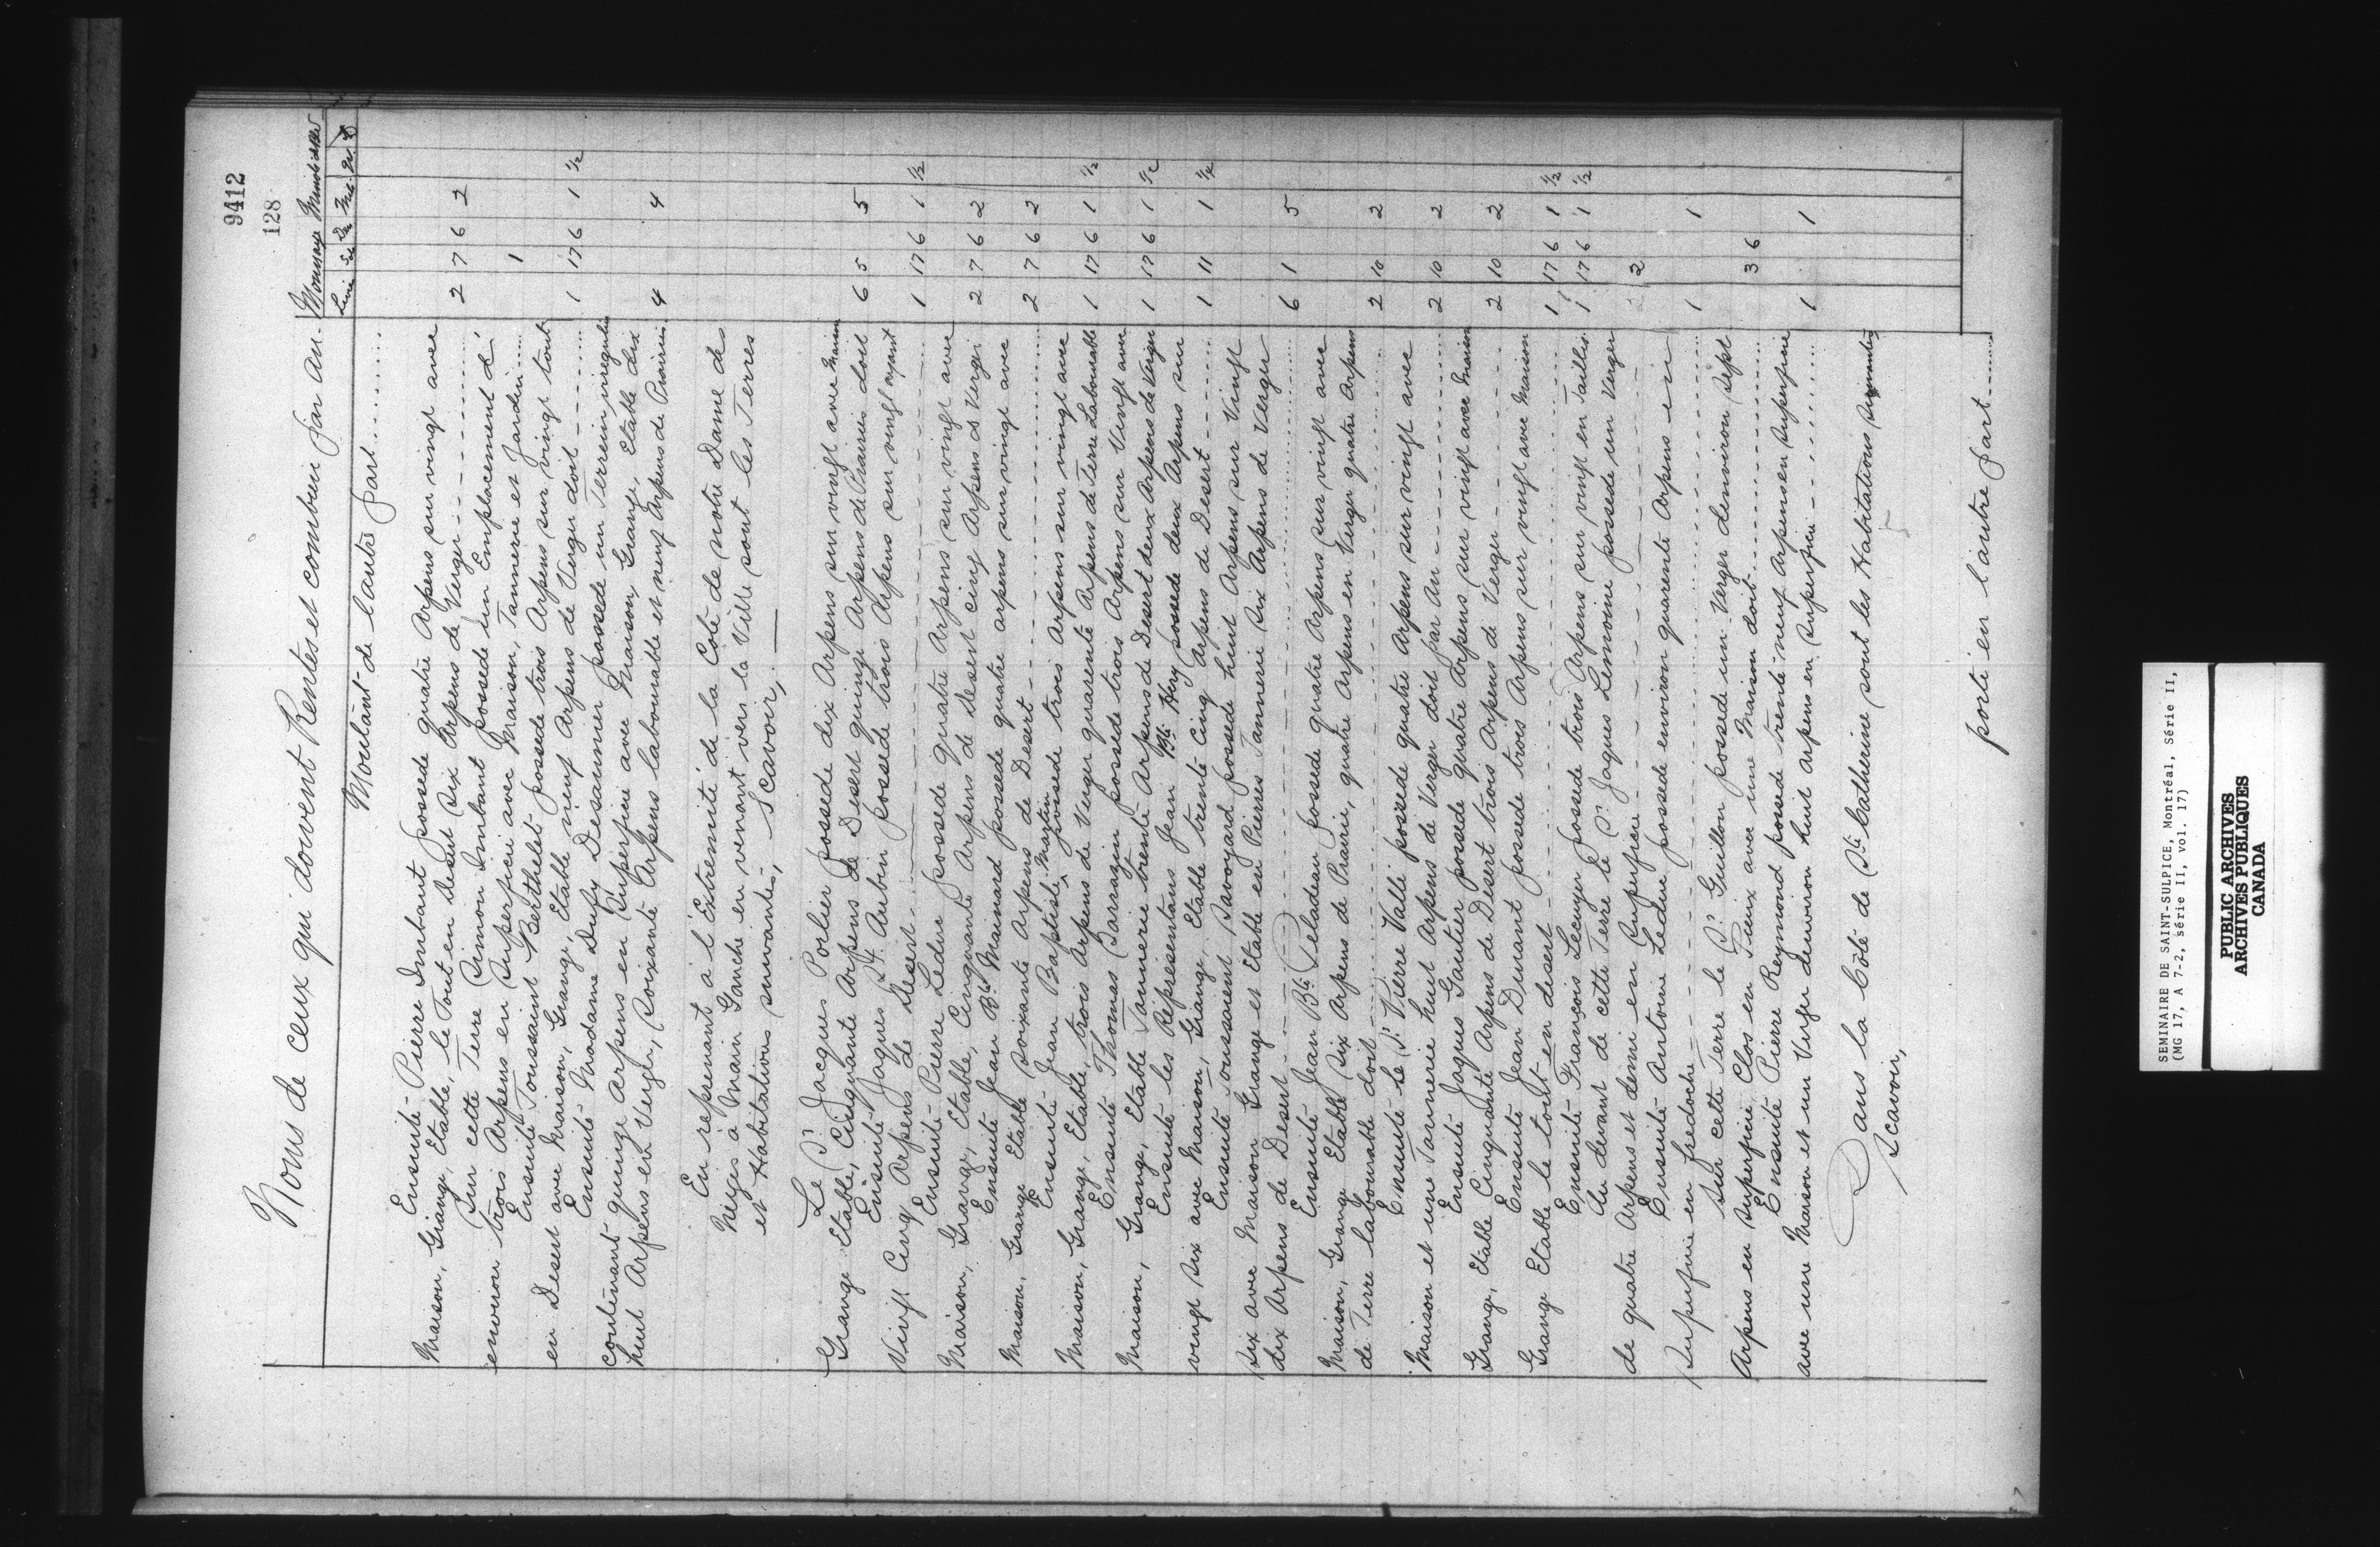 9412
128
Noms de ceux qui doivent Rentes et combien par an. Monnaye Minots de Bled
Livres Sol Den Mts
Montant de lautre part
Ensuite Pierre Imbaut possede quatre Arpens sur vingt avec
Maison, Grange, Etable, le Tout en Desert Six Arpens de Verger 2 7 6 2
Sur cette Terre Simon Imbaut possede un Emplacement d'
environ trois Arpens en Superficie avec Maison, Tannerie et Jardin 1
Ensuite Toussaint Berthelet possede trois Arpens sur vingt tout
en Desert avec Maison, Grange, Etable neuf Arpens de Verger doit 1 17 6 1 1/2
Ensuite Madame Dufy Desaunier possede un Terrein irregulier
contenant quinze Arpens en Superficie avec Maison Grange, Etable dix
huit Arpens en Verger, Soixante Arpens labourable et neuf Arpens de Prairie. 4 4
En reprenant à l'Extremité de la Côte de notre Dame des
Neiges à Main Gauche en venant vers la Ville sont les Terres
et Habitations suivantes, Scavoir,
Le Sr. Jacques Porlier possede dix Arpens sur vingt avec Maison
Grange Etable, Cinquante Arpens de Desert quinze Arpens de Prairies doit 6 5 5
Ensuite Jaques St. Aubin possede trois Arpens sur vingt ayant
Vingt Cinq Arpens de Desert 1 17 6 1 1/2
Ensuite Pierre Leduc possede quatre Arpens sur vingt avec
Maison, Grange, Etable, Cinquante Arpens de Desert cinq Arpens de Verger 2 7 6 2
Ensuite Jean Bte Mainard possede quatre arpens sur vingt avec
Maison, Grange Etable Soixante Arpens de Desert 2 7 6 2
Ensuite Jean Baptiste Martin possede trois Arpens sur vingt avec
Maison, Grange, Etable, trois Arpens de Verger quarente Arpens de Terre Labourable 1 17 6 1 1/2
Ensuite Thomas Sarrazin possede trois Arpens sur Vingt avec
Maison, Grange, Etable Tannerie trente Arpens de Desert deux Arpens de Verger 1 17 6 1 1/2
Ensuite les Representans Jean Bte Huy possede deux Arpens sur
vingt six avec Maison, Grange, Etable trente Cinq Arpens de Desert 1 11 1 1/4
Ensuite Toussaint Savoyard possede huit Arpens sur Vingt
Six avec Maison Grange et Etable en Pierres Tannerie Six Arpens de Verger
dix Arpens de Desert 6 1 5
Ensuite Jean Bte Peladeau possede quatre Arpens sur vingt avec
Maison, Grange Etable Six Arpens de Prairie, quatre Arpens en Verger quatre Arpens
de Terre labourable doit 2 10 2
Ensuite le Sr. Pierre Valli possede quatre Arpens sur vingt avec
Maison et une Tannerie huit Arpens de Verger doit par An 2 10 2
Ensuite Jaques Gautier possede quatre Arpens sur vingt avec Maison
Grange, Etable Cinquante Arpens de Desert trois Arpens de Verger 2 10 2
Ensuite Jean Dunant possede trois Arpens sur vingt avec Maison
Grange Etable le tout en desert 1 17 6 1 1/2
Ensuite François Lecuyer possede trois Arpens sur vingt en Taillis. 1 17 6 1 1/2
Au devant de cette Terre le Sr. Jaques Lemoine possede un Verger
de quatre Arpens et demi en Superficie 2
Ensuite Antoine Leduc possede environ quarente Arpens en
Superficie en fredoche 1 1
Sur cette Terre le Sr. Guillon possede un Verger denviron Sept
Arpens en Superficie Clos en Pieux avec une Maison doit 3 6
Ensuite Pierre Reymond possede trente neuf Arpens en Superficie
avec une Maison et un Verger denviron huit arpens en Superficie 1 1
Dans la Côte de Ste. Catherine sont les Habitations suivantes
Scavoir,
porté en lautre part
SEMINAIRE DE SAINT-SULPICE, Montréal, Série II,
(MG 17, A 7-2, série II, vol. 17)
PUBLIC ARCHIVES
ARCHIVES PUBLIQUES
CANADA